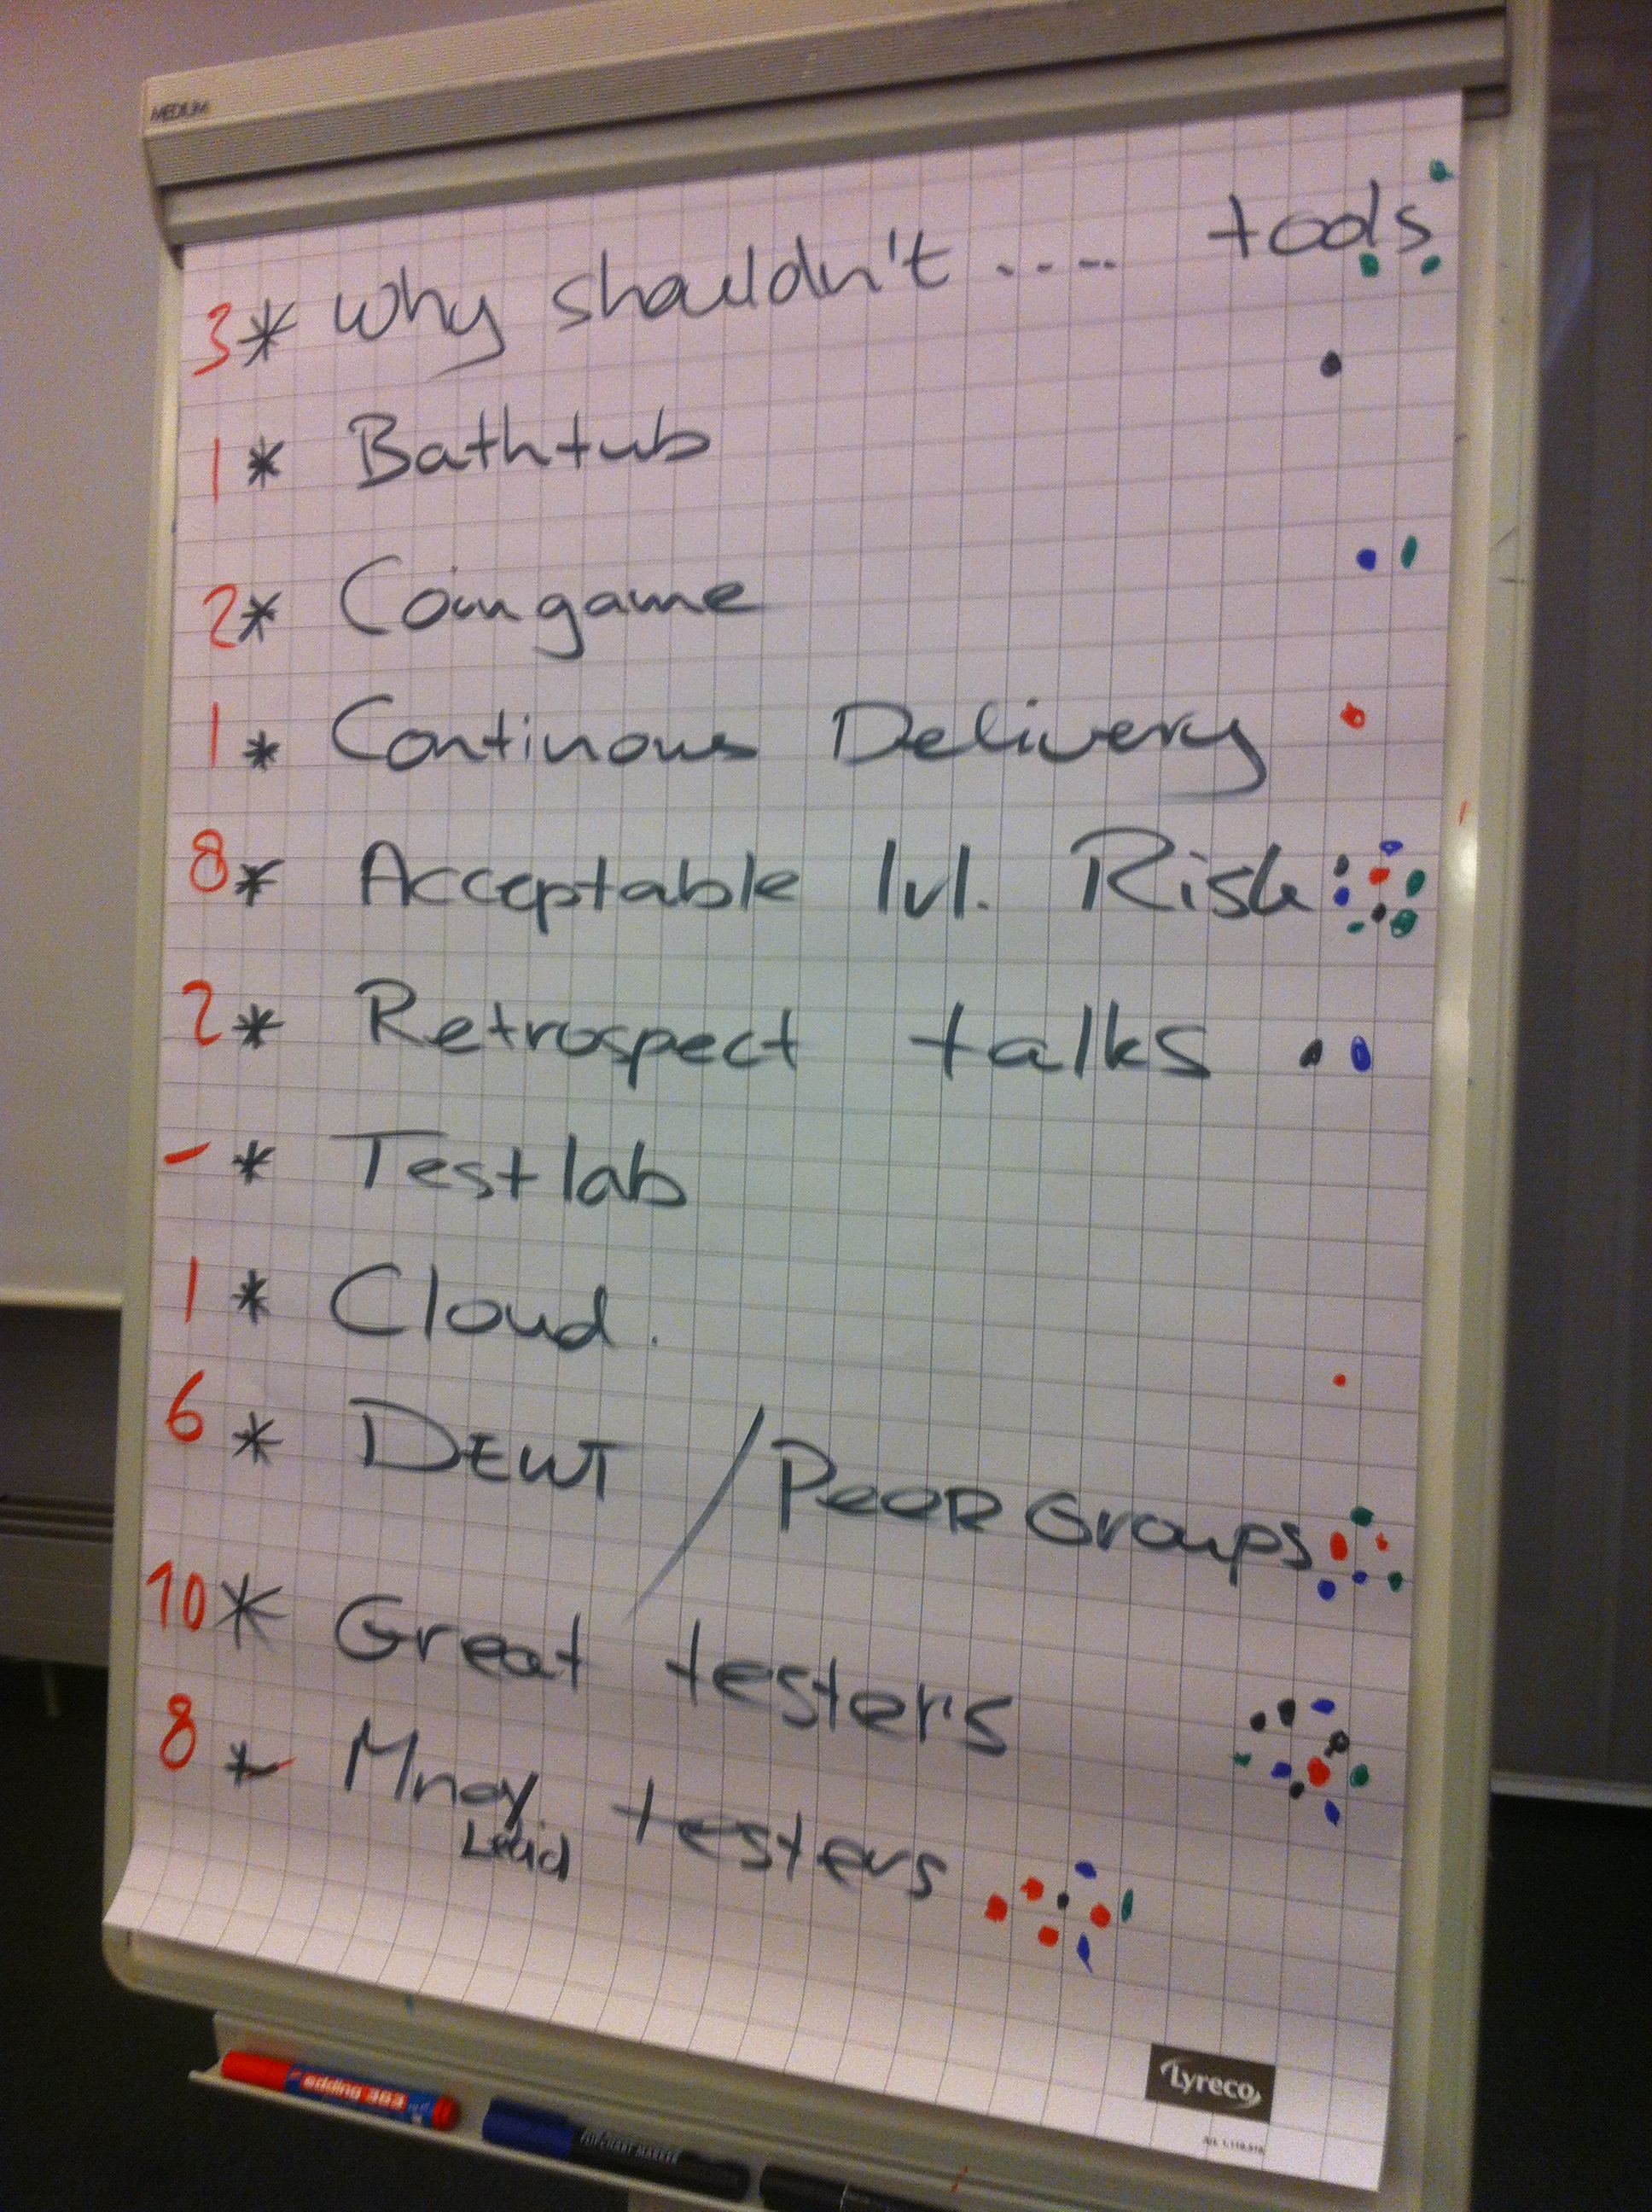 MEDIUM
3 * Why shouldn't .... tools
1 * Bathtub
2 * Coingame
1 * Continous Delivery
8 * Acceptable lvl. Risk
2 * Retrospect talks
- * Testlab
1 * Cloud.
6 * DEWT / PeeR Groups
10 * Great testers
8 * Mnay testers
Lyreco
edding 383
FLIPCHART MARKER